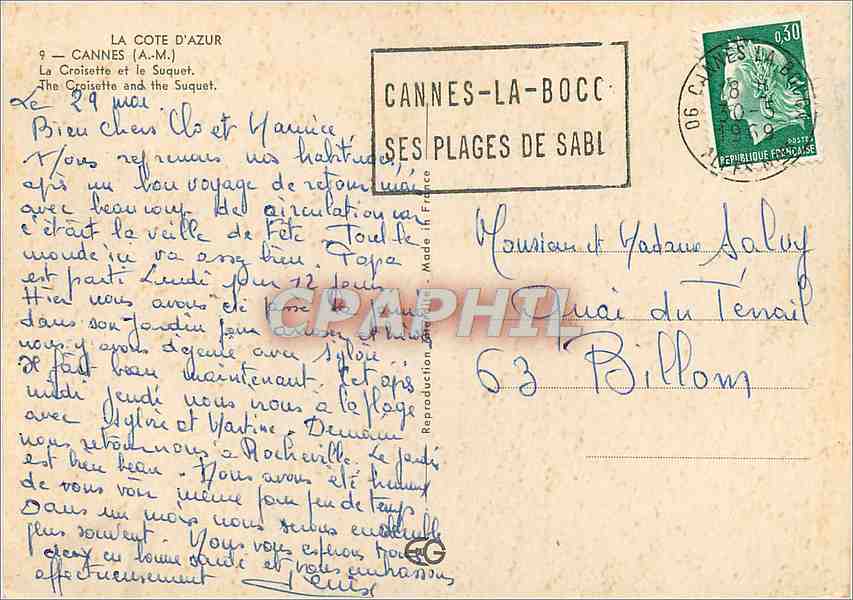 LA COTE D'AZUR
9 — CANNES (A.-M.)
La Croisette et le Suquet.
The Croisette and the Suquet.
Le 29 mai.
Bien chers Clo et Maurice,
Nous reprenons nos habitudes,
après un bon voyage de retour mais
avec beaucoup de circulation car
c'était la veille de fête. Tout le
monde ici va assez bien. Papa
est parti Lundi pour 12 jours
Hier nous avons été
dans son jardin pour
nous y avons déjeuné avec Sylvie.
Il fait beau maintenant. Cet après
midi Jeudi nous irons à la plage
avec Sylvie et Martine. Demain
nous retournons à Rocheville. Le jardin
est bien beau. Nous avons été heureux
de vous voir même pour peu de temps
Dans un mois nous serons ensemble
plus souvent. Nous vous espérons tous
deux en bonne santé et vous embrassons
affectueusement
CANNES-LA-BOCC
SES PLAGES DE SABL
0,30
POSTES
REPUBLIQUE FRANÇAISE
06 CANNES LA BOCCA
30-5
1969
Reproduction - Made in France
Monsieur et Madame Salvy
Quai du Terrail
63 Billom
CPAPHIL
EG